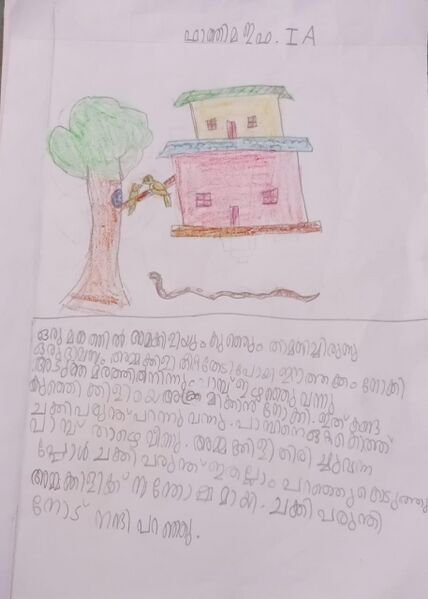 ഫാത്തിമ ഇഫ. I A
ഒരു മരത്തിൽ അമ്മക്കിളിയും കുഞ്ഞും താമസിച്ചിരുന്നു
ഒരു ദിവസം അമ്മക്കിളി തീറ്റതേടി പോയി ഈ തക്കം നോക്കി
അടുത്ത മരത്തിൽ നിന്നും പാമ്പ് ഇഴഞ്ഞു വന്നു
കുഞ്ഞിക്കിളിയെ അക്രമിക്കാൻ നോക്കി. ഇത് കണ്ട
ചക്കിപരുന്ത് പറന്നു വന്നു. പാമ്പിനെ കൊത്തി
പാമ്പ് താഴെ വീണു. അമ്മക്കിളി തിരിച്ചുവന്ന
പ്പോൾ ചക്കി പരുന്ത് ഇതെല്ലാം പറഞ്ഞു കൊടുത്തു
അമ്മക്കിളിക്ക് സന്തോഷമായി. ചക്കി പരുന്തി
നോട് നന്ദി പറഞ്ഞു.